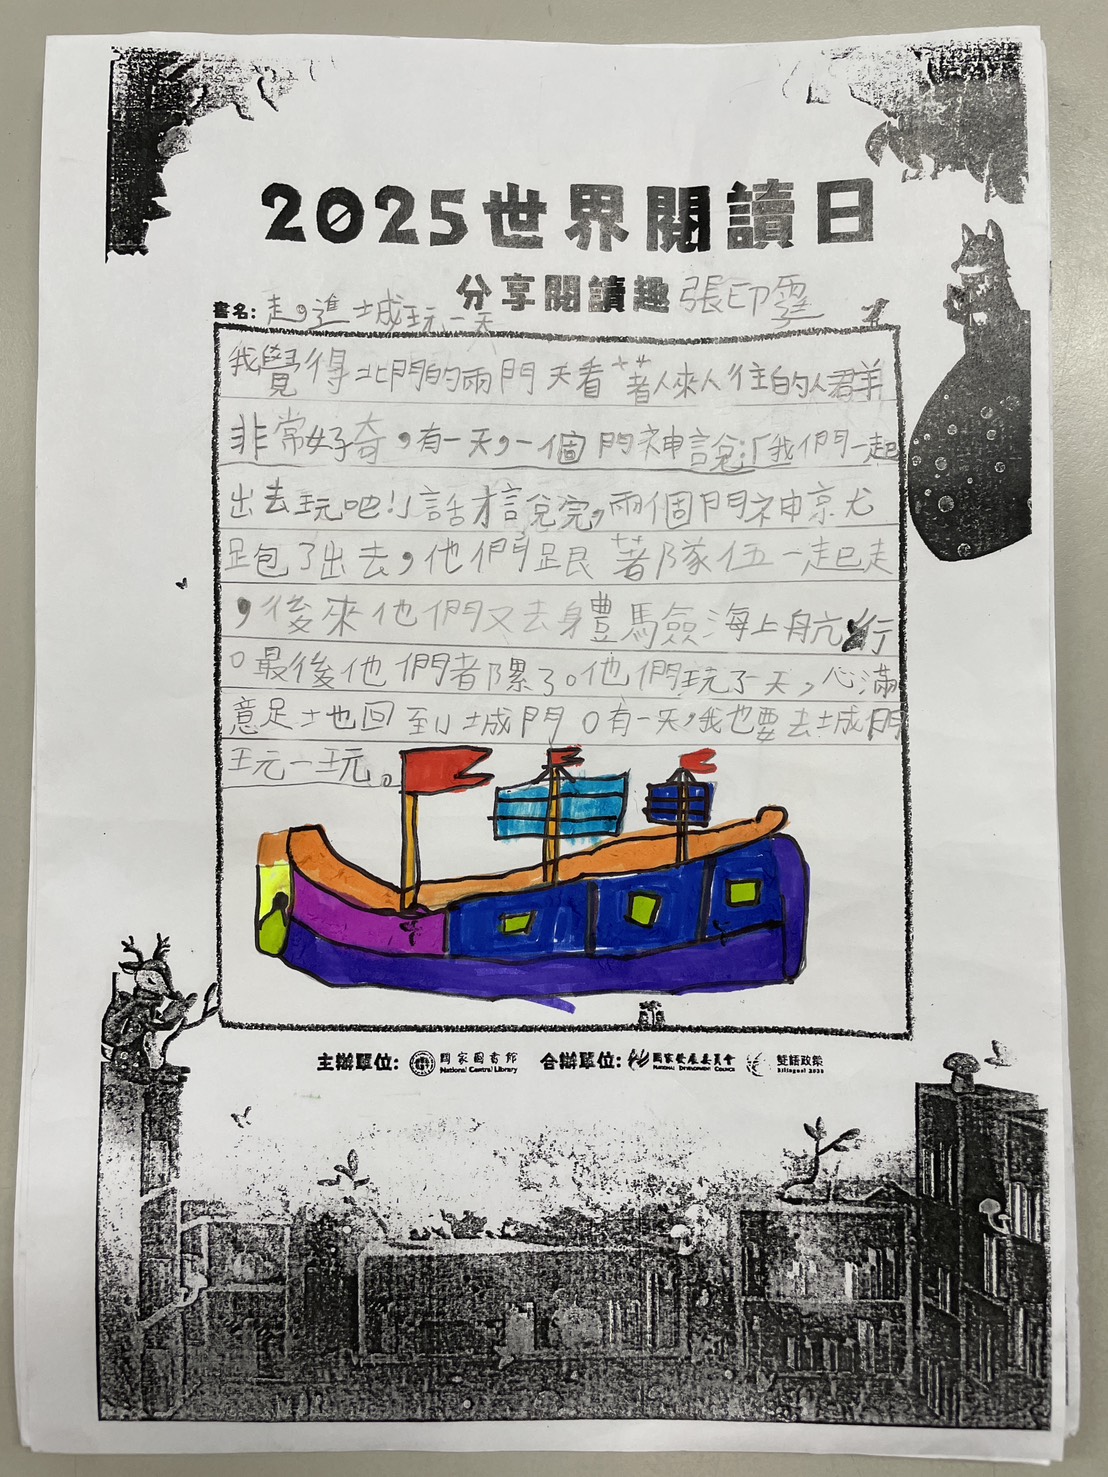 2025世界閱讀日
分享閱讀趣 張印霆
書名：走，進城玩一天
我覺得北門的兩門天看著人來人往的人群
非常好奇，有一天，一個門神說：「我們一起
出去玩吧！」話才說完，兩個門神京尤
跑了出去，他們跟著隊伍一起走
，後來他們又去身體馬僉海上航行
。最後他們者隊了。他們玩了一天，心滿
意足地回到城門。有一天，我也要去城門
玩一玩。
主辦單位：國家圖書館 National Central Library 合辦單位：國家發展委員會 NATIONAL DEVELOPMENT COUNCIL 雙語政策 Bilingual 2030